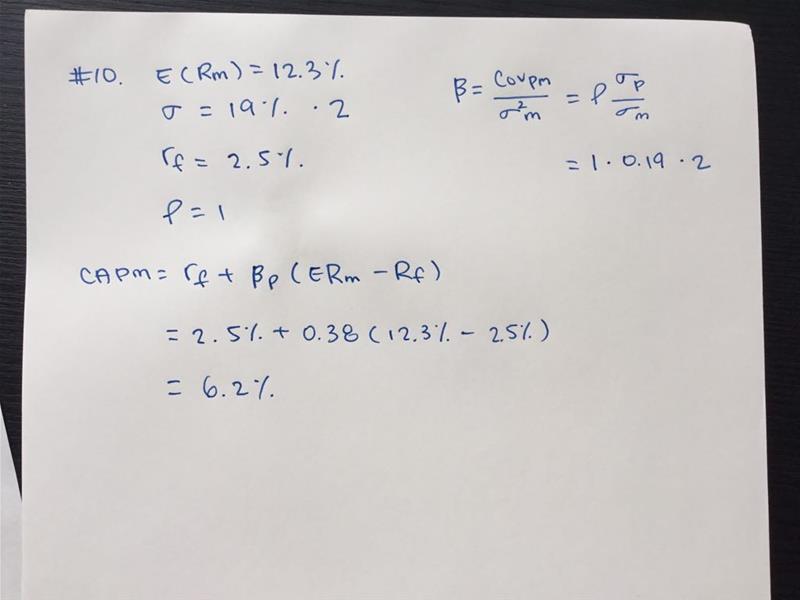 #10. E(Rm) = 12.3%
σ = 19% · 2
rf = 2.5%.
ρ = 1
β = Covpm / σ²m = ρ σp / σm
= 1 · 0.19 · 2
CAPM = rf + βp (ERm - Rf)
= 2.5% + 0.38 (12.3% - 2.5%)
= 6.2%.